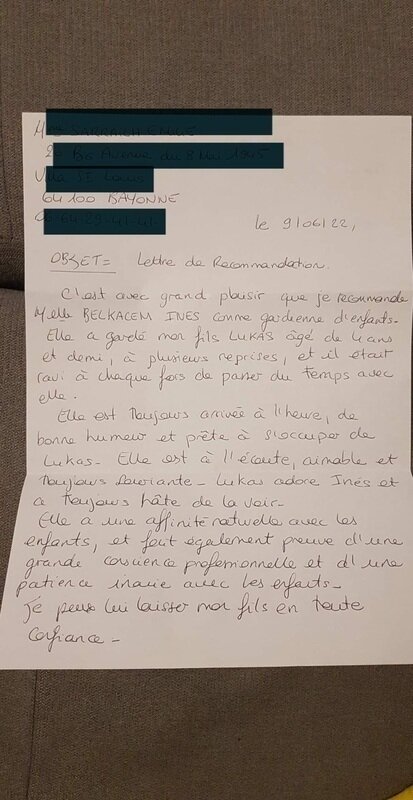 64100 BAYONNE
le 9/06/22,
OBJET= Lettre de Recommandation.
C'est avec grand plaisir que je recommande
Melle BELKACEM INES comme gardienne d'enfants.
Elle a gardé mon fils LUKAS âgé de 4 ans
et demi, à plusieurs reprises, et il était
ravi à chaque fois de passer du temps avec
elle.
Elle est toujours arrivée à l'heure, de
bonne humeur et prête à s'occuper de
Lukas. Elle est à l'écoute, aimable et
toujours souriante. Lukas adore Inés et
a toujours hâte de la voir.
Elle a une affinité naturelle avec les
enfants, et fait également preuve d'une
grande conscience professionnelle et d'une
patience inouïe avec les enfants.
je peux lui laisser mon fils en toute
confiance.